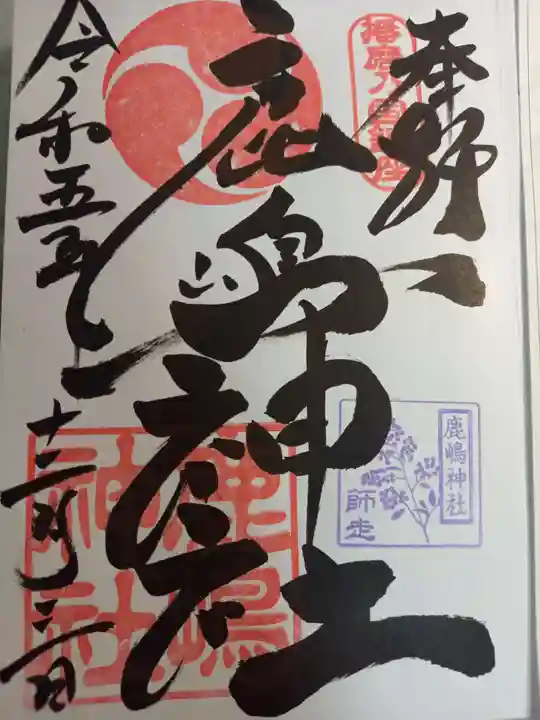 奉拝
鹿嶋神社
鹿嶋神社
師走
鹿嶋神社
令和五年
十二月三日